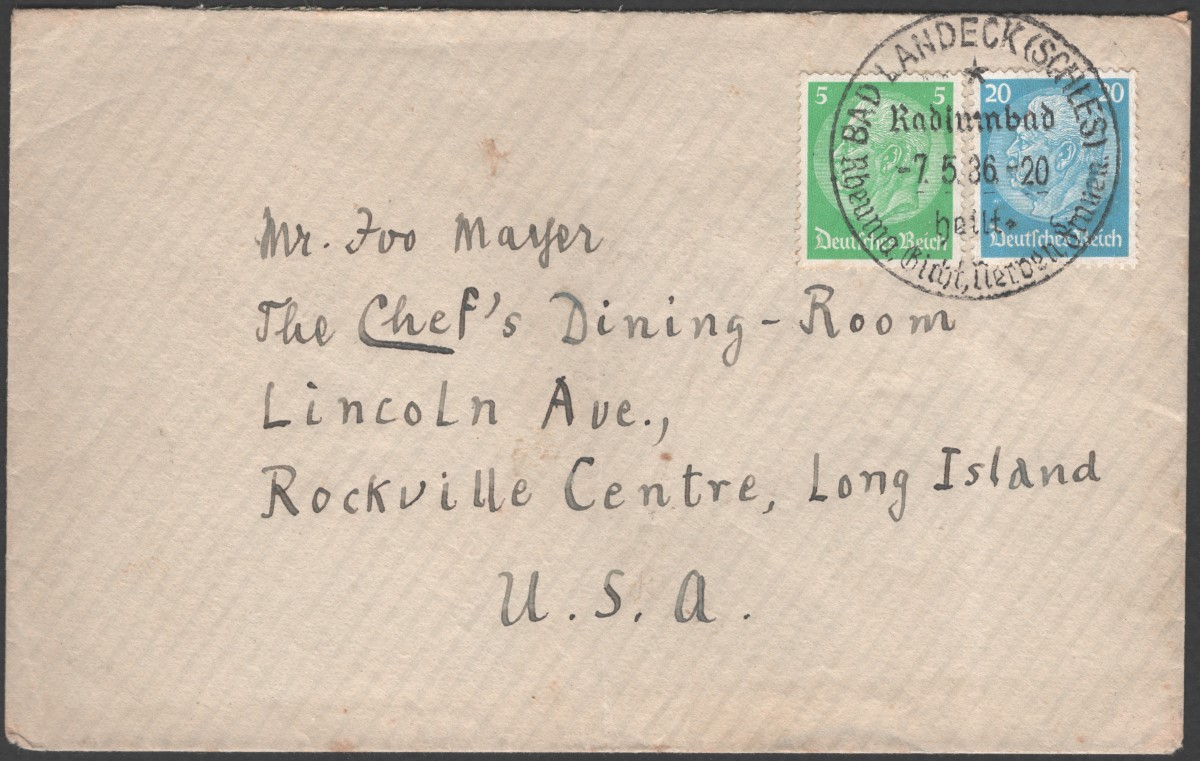 BAD LANDECK (SCHLES)
Radiumbad
-7.5.36.-20
heilt
Rheuma, Gicht, Nerven, Frauen.
5 5
Deutsches Reich
20 20
Deutsches Reich
Mr. Ivo Mayer
The Chef's Dining-Room
Lincoln Ave.,
Rockville Centre, Long Island
U.S.A.